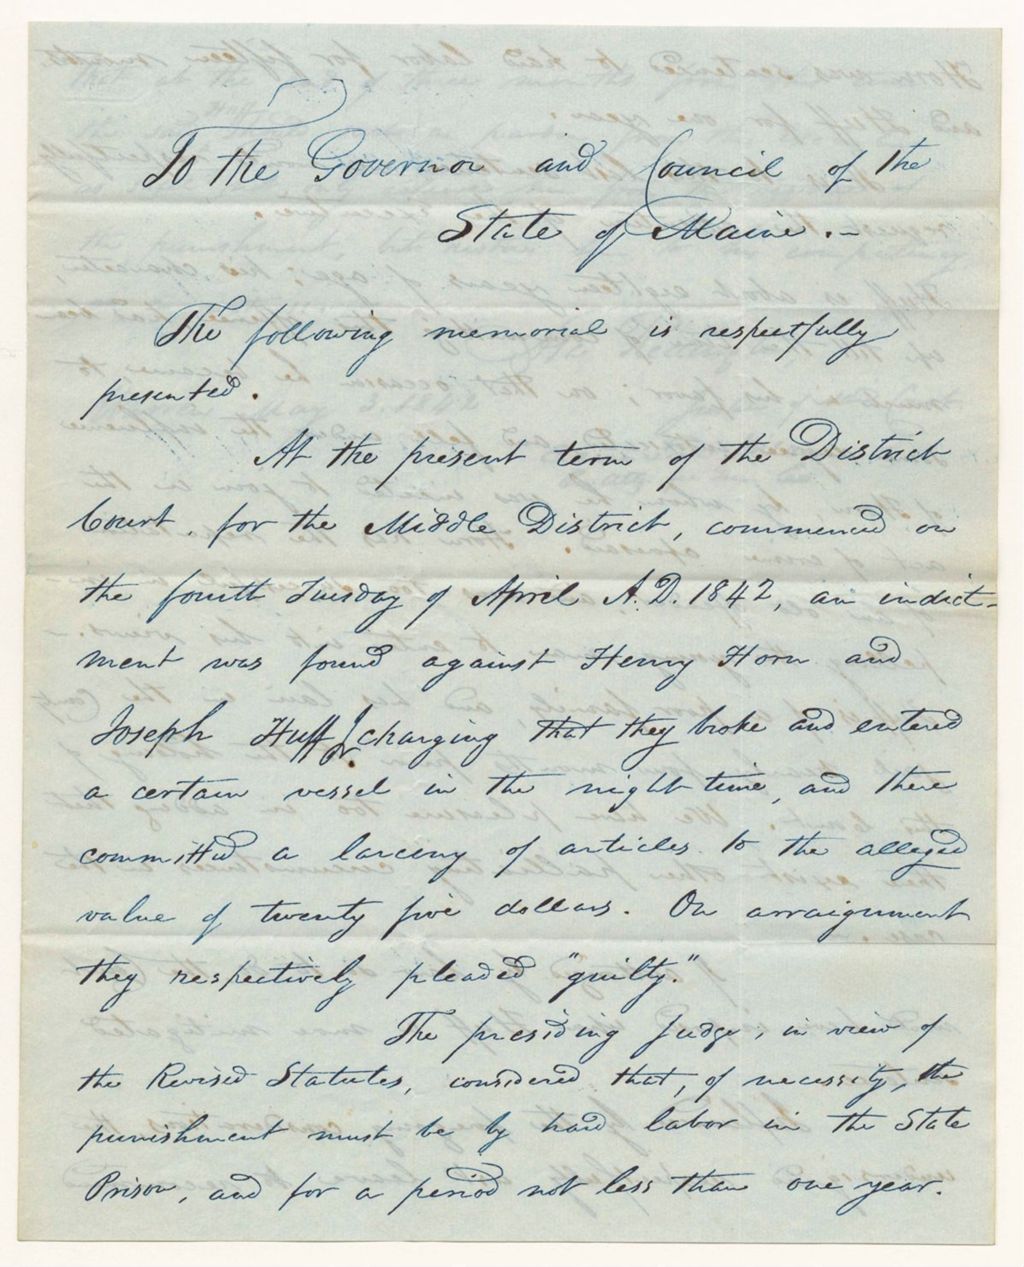 To the Governor and Council of the
State of Maine. –
The following memorial is respectfully
presented.
At the present term of the District
Court, for the Middle District, commenced on
the fourth Tuesday of April A.D. 1842, an indict-
ment was found against Henry Horn and
Joseph Huff Jr. charging that they broke and entered
a certain vessel in the night time, and there
committed a larceny of articles to the alleged
value of twenty five dollars. On arraignment
they respectively pleaded "guilty."
The presiding Judge, in view of
the Revised Statutes, considered that, of necessity, the
punishment must be by hard labor in the State
Prison, and for a period not less than one year.